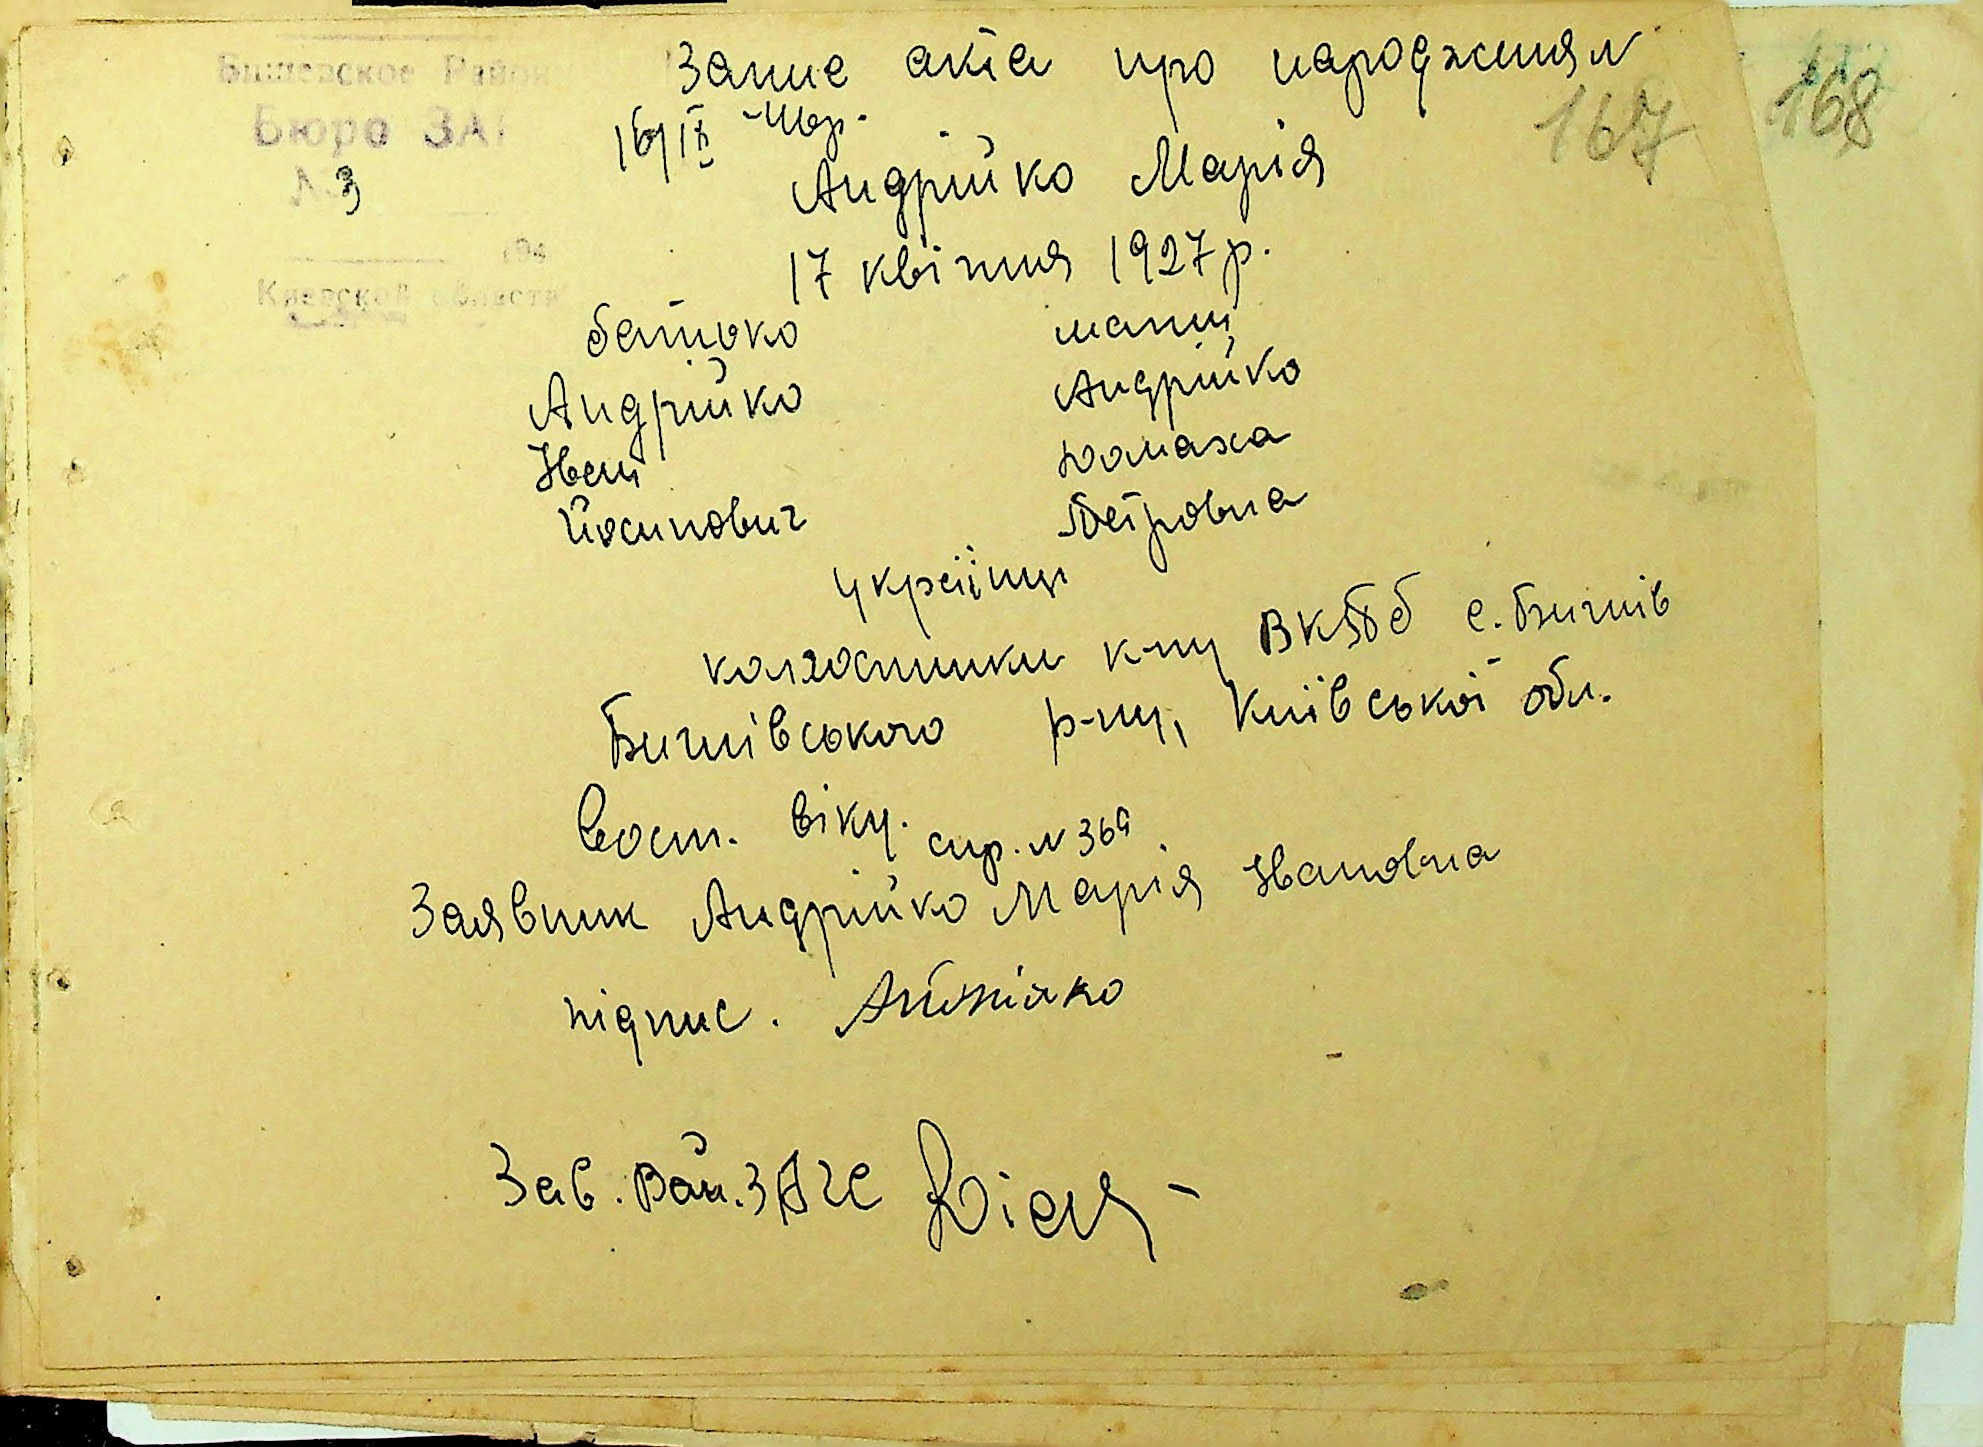 Бишевское Район
Бюро ЗАГ
№ 3
194
Киевской области
Запис акта про народження №
167
168
16/IX
Андрійко Марія
17 квітня 1927 р.
батько мати
Андрійко Андрійко
Іван Домаха
Йосипович Петровна
українці
колхосники к-пу ВКПб с. Бишів
Бишівського р-ну, Київської обл.
Вост. віку. спр. № 369
Заявник Андрійко Марія Івановна
підпис. Андрійко
Зав. Рай. ЗАГС